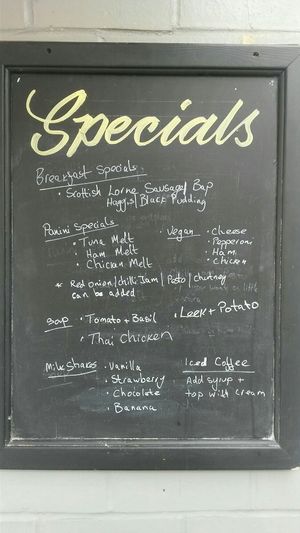 Specials
Breakfast Specials
• Scottish Lorne Sausage Bap
Haggis/Black Pudding
Panini Specials
• Tuna Melt
• Ham Melt
• Chicken Melt
• Vegan
• Cheese
• Pepperoni
• Ham
• Chicken
* Red onion/chilli Jam/Pesto/chutney
can be added
Soup • Tomato + Basil • Leek + Potato
• Thai Chicken
Milkshakes • Vanilla
• Strawberry
• Chocolate
• Banana
Iced Coffee
Add syrup +
top with cream